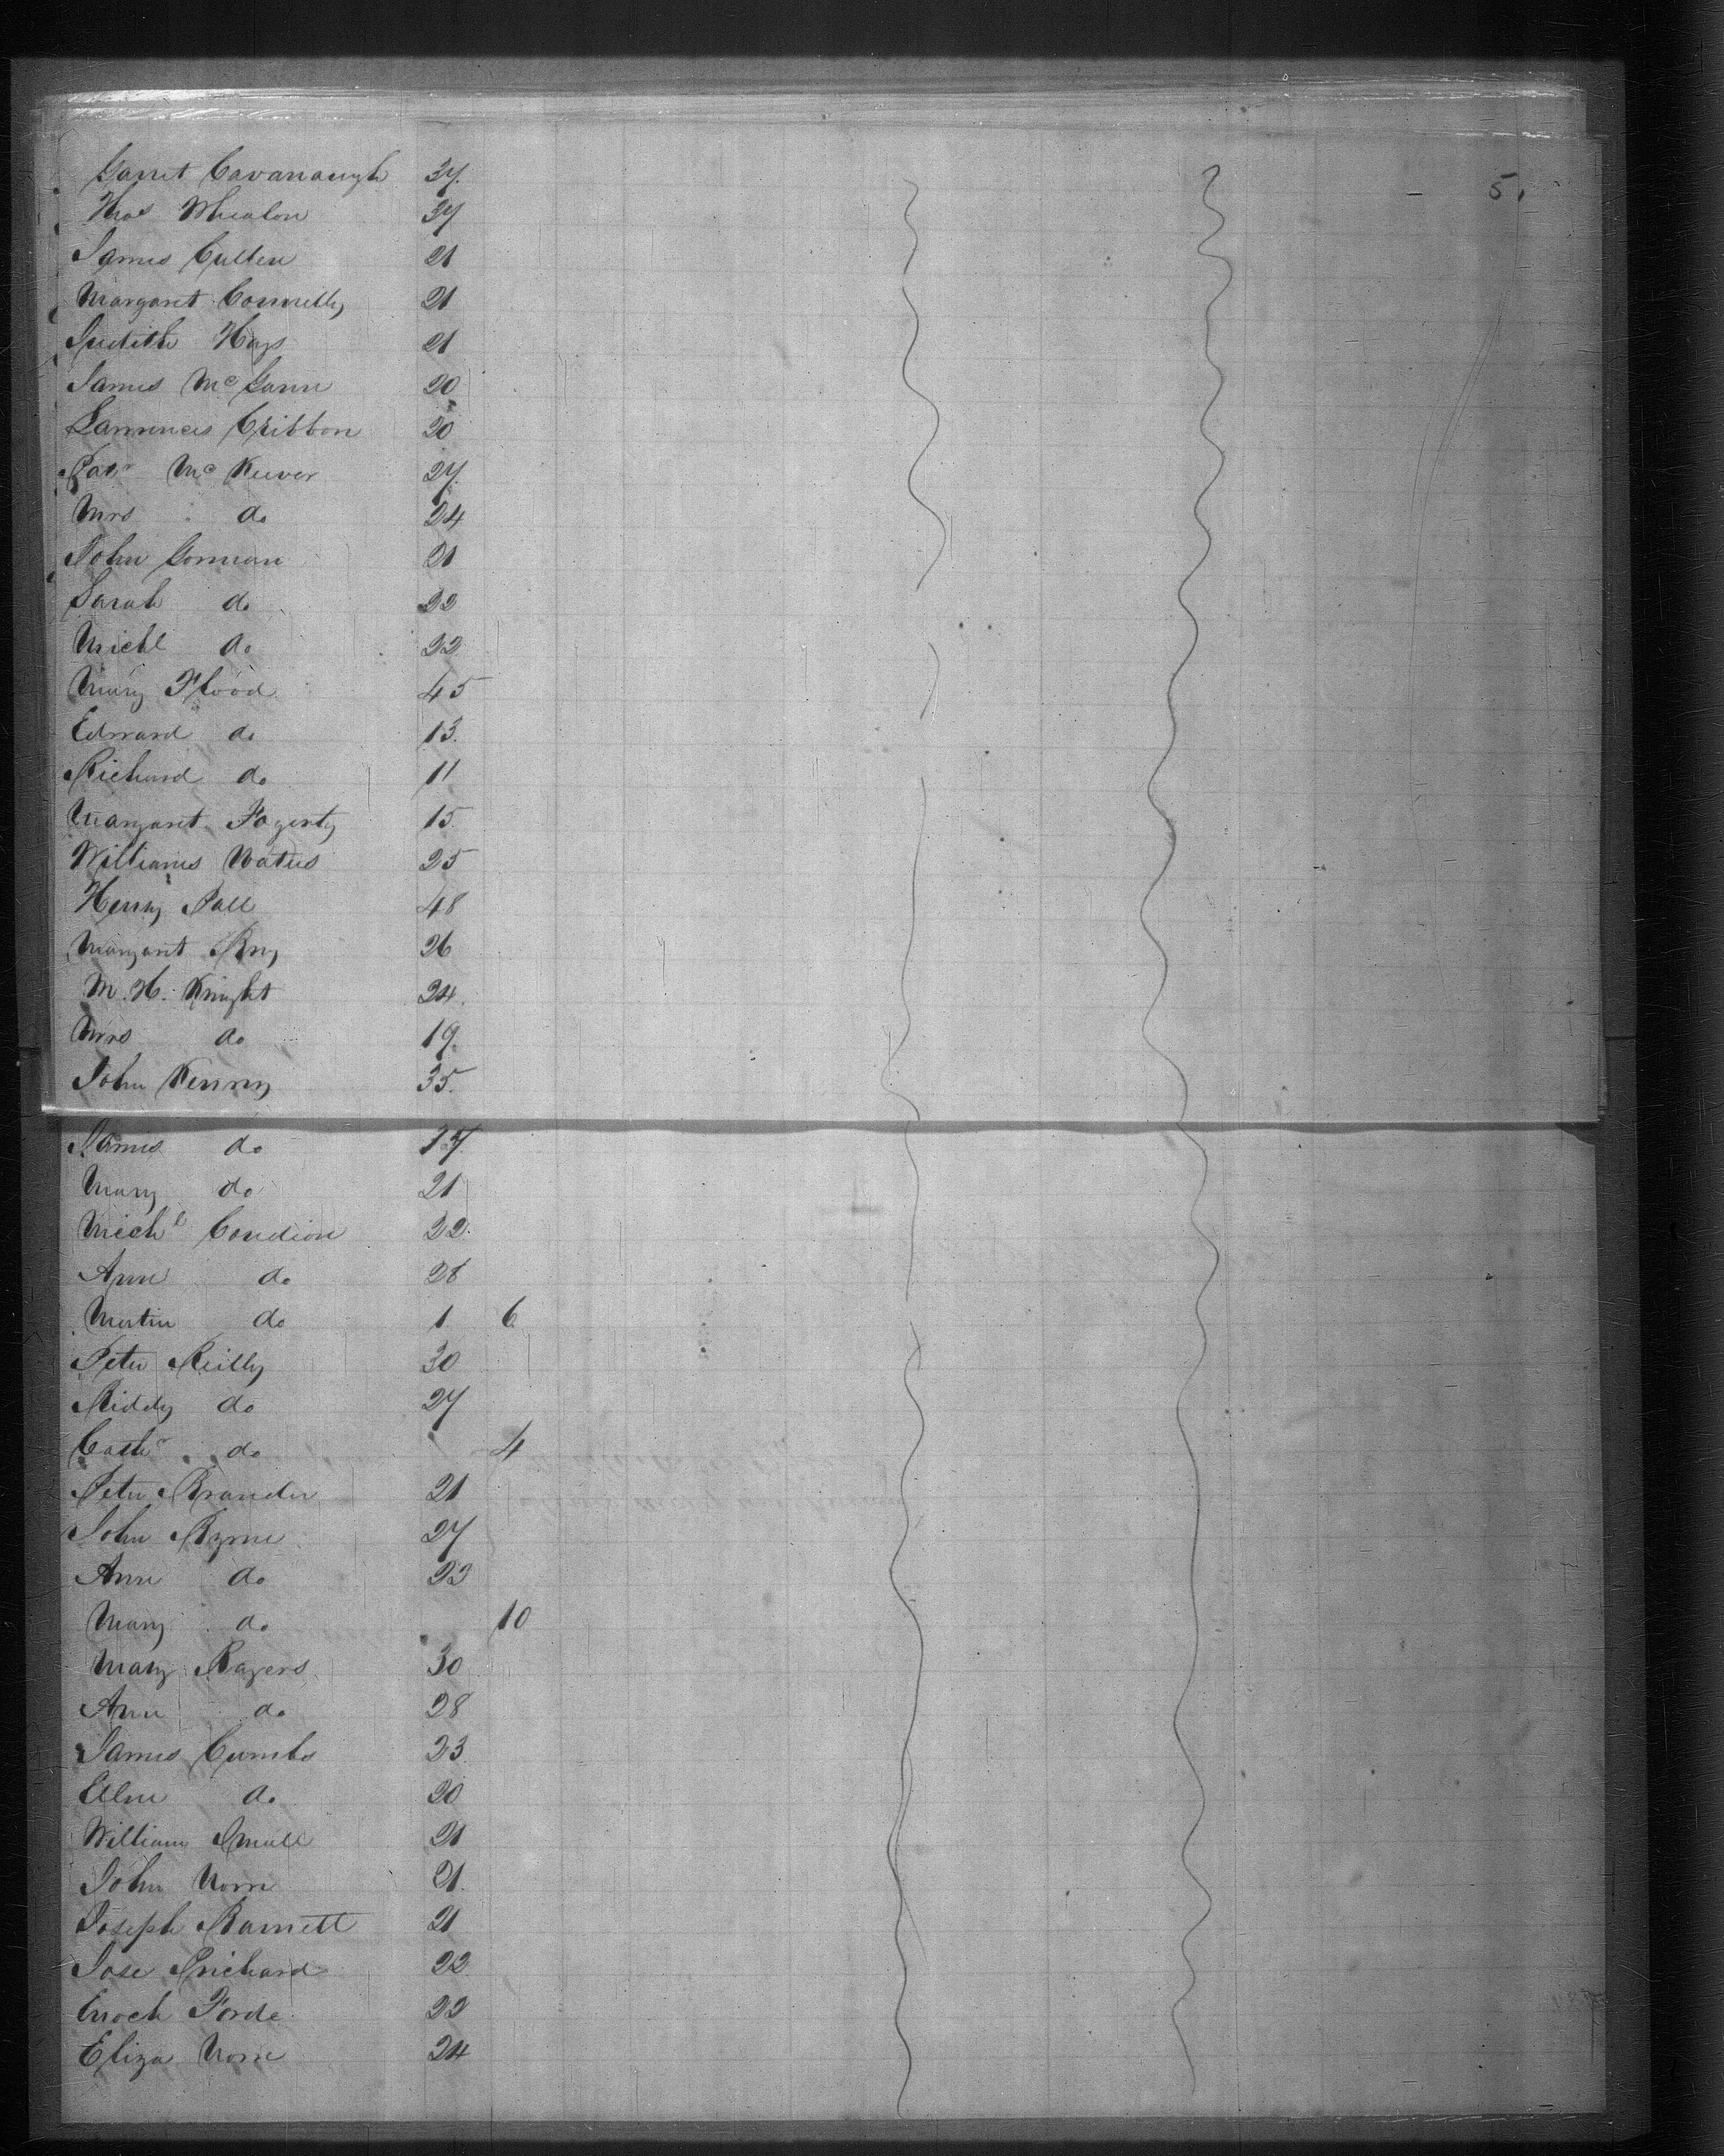 Garret Cavanaugh 37. 5.
Thos Whealon 37
James Cullen 21
Margaret Connelly 21
Judith Hays 21
James McGann 20
Lawrences Gribbon 20
Patr McKeever 27.
Mrs do 24
John Gorman 21
Sarah do 22
Michl do 22
Mary Flood 45
Edward do 13.
Richard do 11
Margaret Fogerty 15.
Williams Waters 25
Henry Pall 48
Margaret 26
M. H. Knight 24.
Mrs do 19.
John Kenny 35.
James do 37.
Mary do 21
Michl Condion 22.
Ann do 28
Martin do 1 6
Peter Reilly 30
Biddy do 27
Cathe do 4
Peter Brander 21
John Byrne 27
Ann do 23
Mary do 10
Mary Rogers 30
Ann do 28
James Cumbs 23.
Ellen do 20
William Small 21
John Norn 21.
Joseph Barnett 21
Jose Prichard 22
Enoch Forde 22
Eliza Norn 24